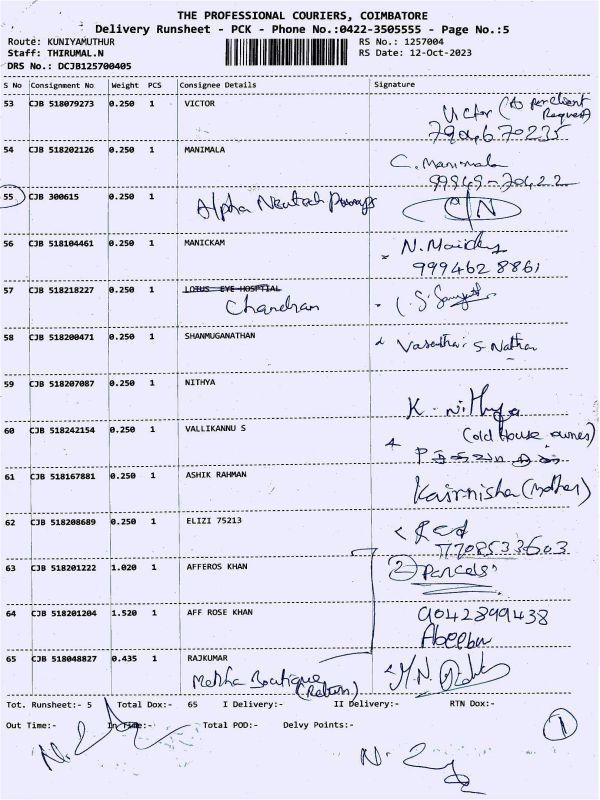 THE PROFESSIONAL COURIERS, COIMBATORE
Delivery Runsheet - PCK - Phone No.:0422-3505555 - Page No.:5
Route: KUNIYAMUTHUR RS No.: 1257004
Staff: THIRUMAL.N RS Date: 12-Oct-2023
DRS No.: DCJB125700405
S No Consignment No Weight PCS Consignee Details Signature
53 CJB 518079273 0.250 1 VICTOR Victor (As per client
Request)
54 CJB 518202126 0.250 1 MANIMALA C. Manimala
99949-70422
55 CJB 300615 0.250 1 Alpha
56 CJB 518104461 0.250 1 MANICKAM N.
9994628861
57 CJB 518218227 0.250 1 LOTUS EYE HOSPTIAL
Chandran
58 CJB 518200471 0.250 1 SHANMUGANATHAN S Nathan
59 CJB 518207087 0.250 1 NITHYA K. Nithya
60 CJB 518242154 0.250 1 VALLIKANNU S (old House owner)
61 CJB 518167881 0.250 1 ASHIK RAHMAN Kairnisha (Mother)
62 CJB 518208689 0.250 1 ELIZI 75213
7708533603
63 CJB 518201222 1.020 1 AFFEROS KHAN 2 Parcels
64 CJB 518201204 1.520 1 AFF ROSE KHAN 9042899438
65 CJB 518048827 0.435 1 RAJKUMAR
Boutique
(Return)
Tot. Runsheet:- 5 Total Dox:- 65 I Delivery:- II Delivery:- RTN Dox:-
Out Time:- In Time:- Total POD:- Delvy Points:-
1